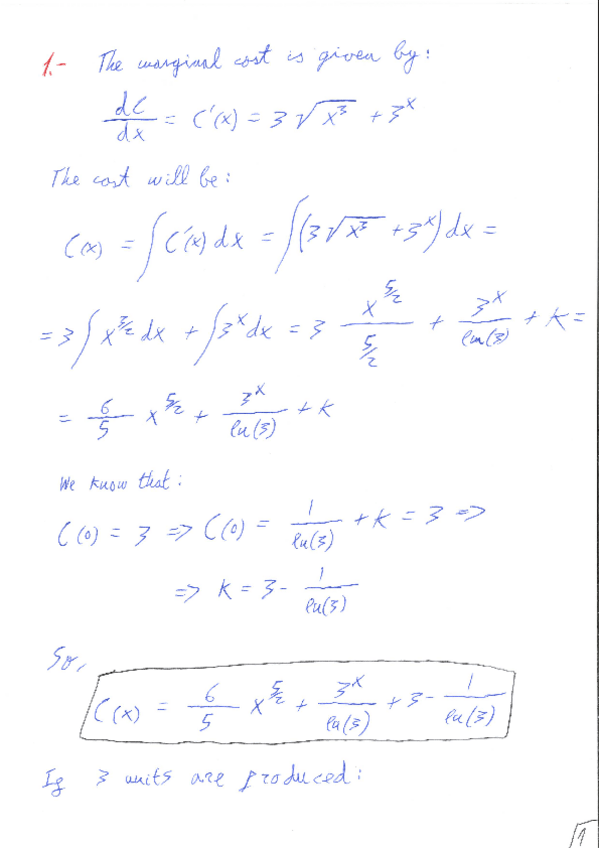 1.- The marginal cost is given by:
dC/dx = C'(x) = 3√x³ + 3^x
The cost will be:
C(x) = ∫C'(x)dx = ∫(3√x³ + 3^x)dx =
= 3∫x^(3/2)dx + ∫3^x dx = 3 x^(5/2)/(5/2) + 3^x/ln(3) + K =
= 6/5 x^(5/2) + 3^x/ln(3) + K
We know that:
C(0) = 3 => C(0) = 1/ln(3) + K = 3 =>
=> K = 3 - 1/ln(3)
So,
C(x) = 6/5 x^(5/2) + 3^x/ln(3) + 3 - 1/ln(3)
If 3 units are produced:
1